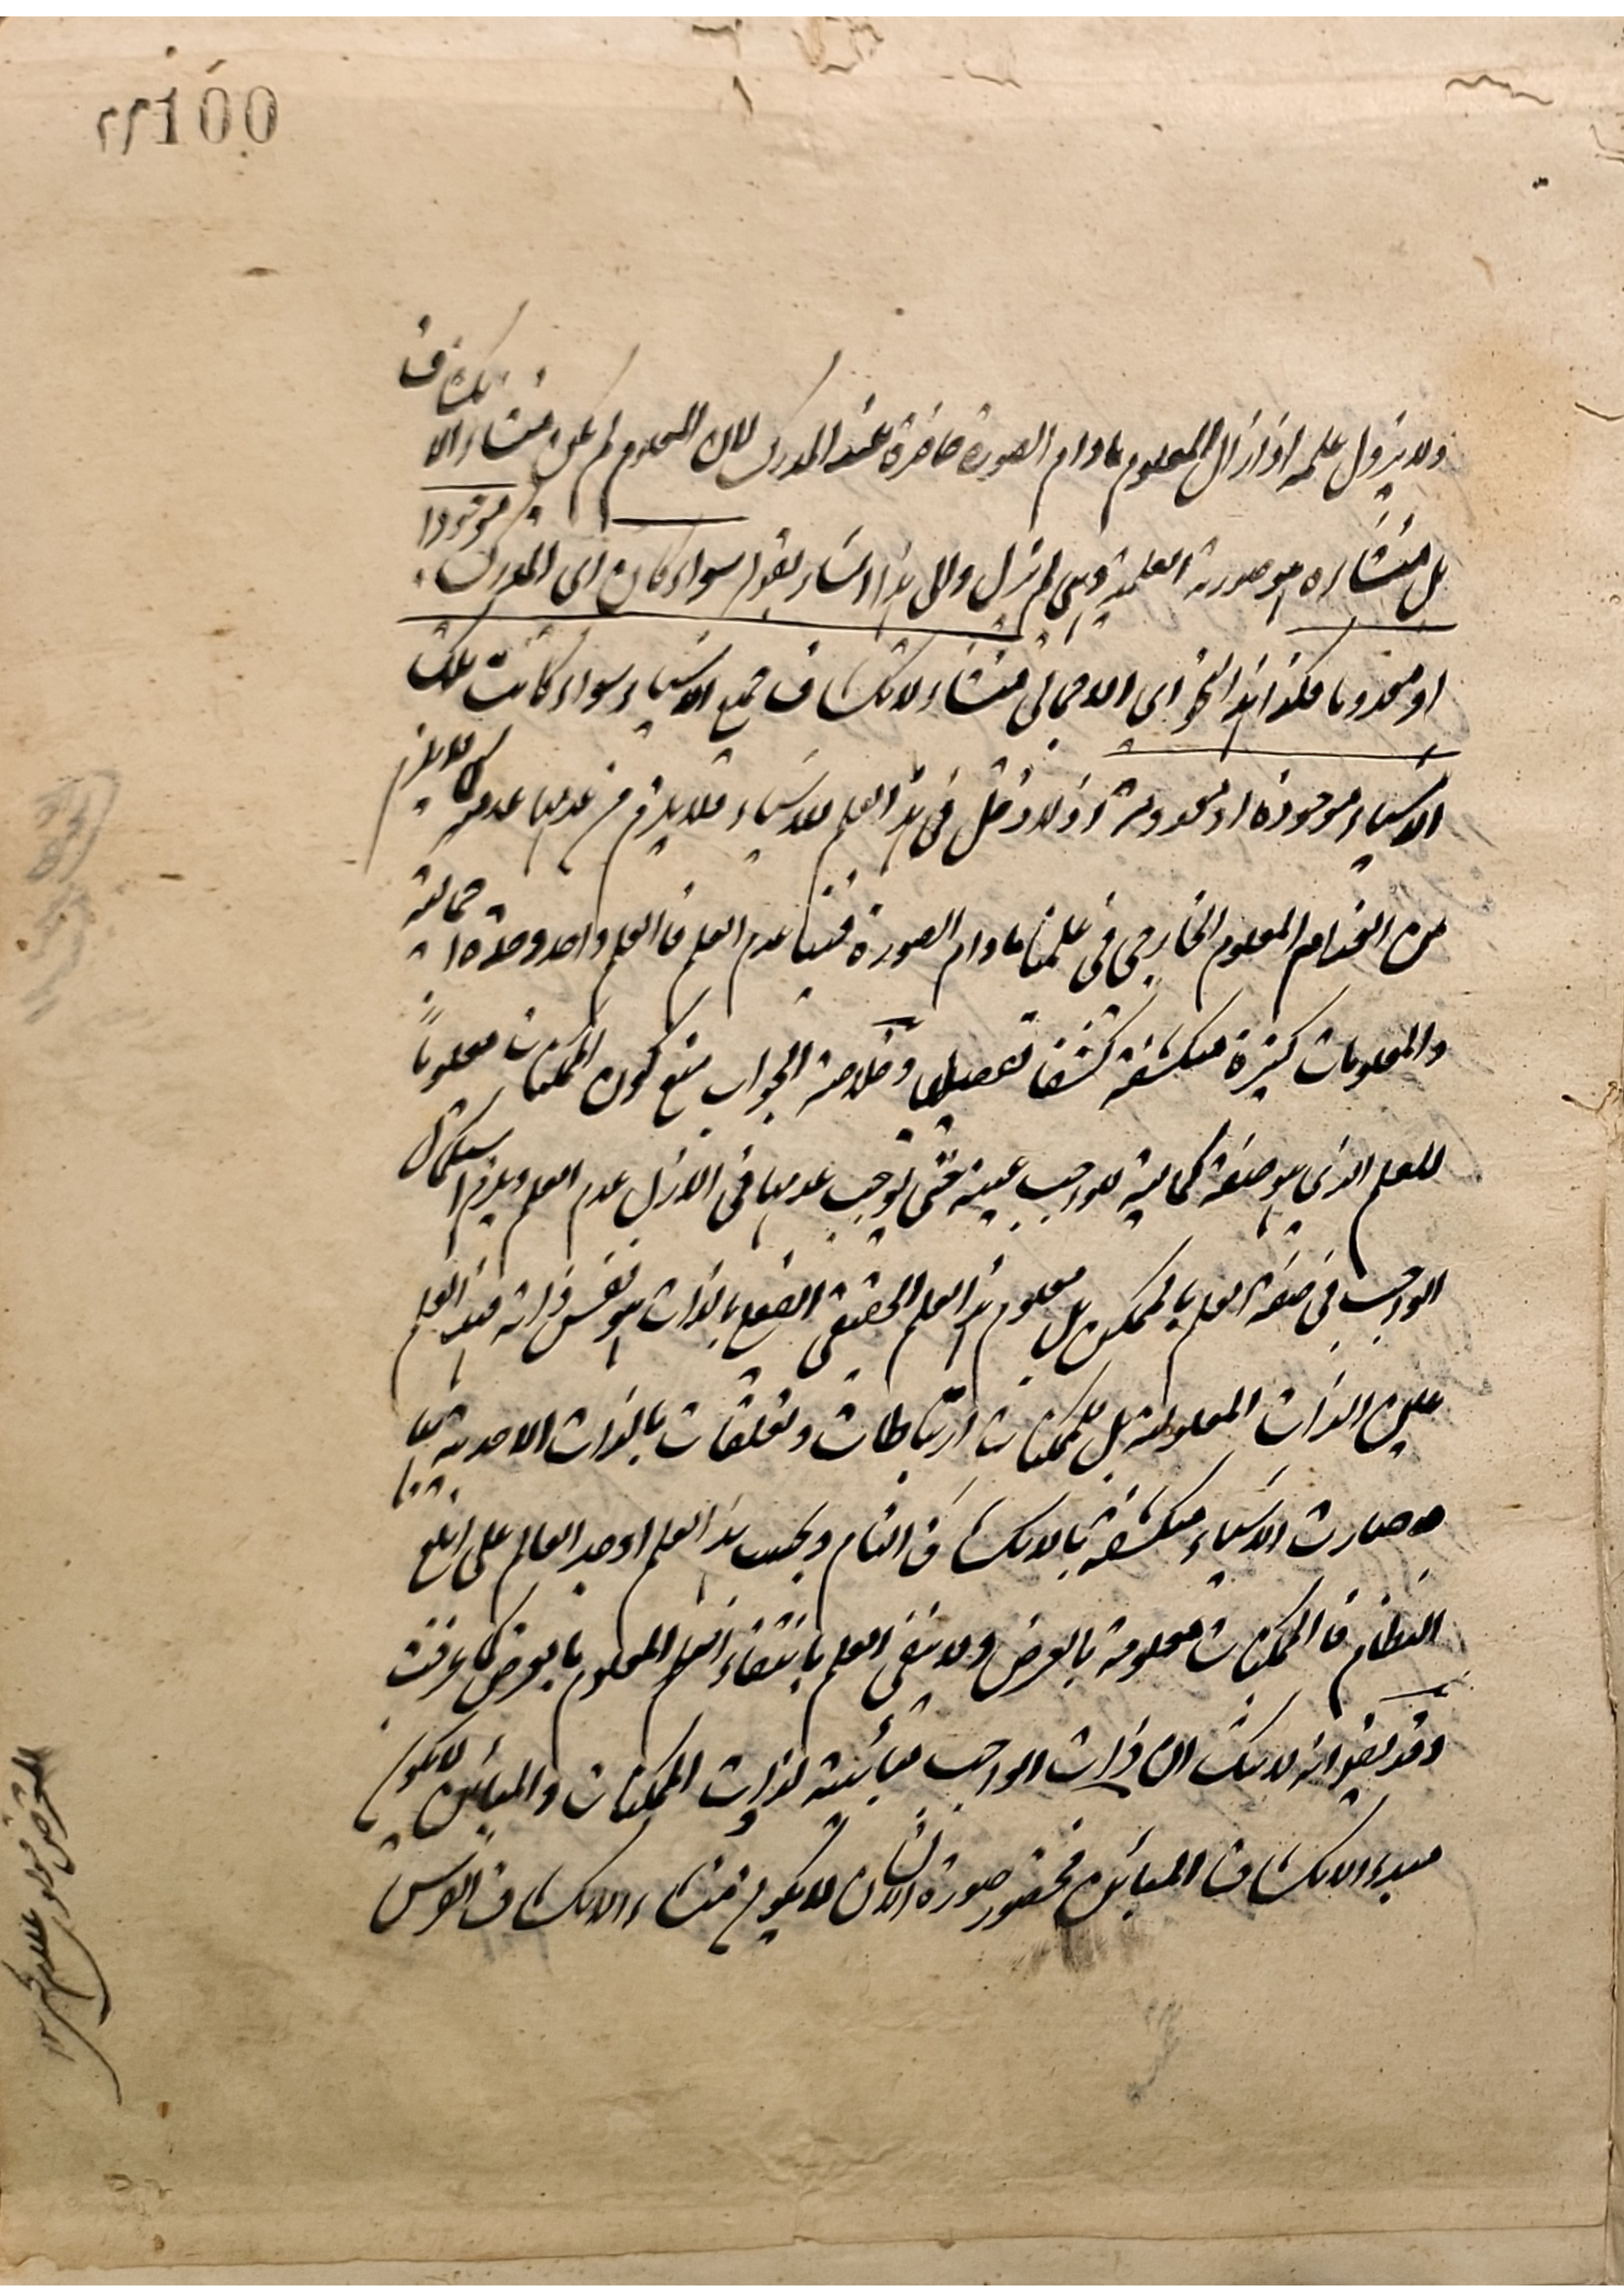 100
ولا يزول علمه اذا زال المعلوم مادام الصورة حاضرة عند المدرك لان المعلوم لم يكن منشاء الانكشاف
بل منشاءه هو صورته العلمية وهى لم تزل والى هذا اشار بقوله سواء كان اى المدرك موجودا
او معدوما فكذا هذا النحو اى الاجمالى منشاء لانكشاف جميع الاشياء سواء كانت تلك
الاشياء موجودة او معدومة اذ لا دخل فى هذا العلم للاشياء فلا يلزم من عدمها عدمه كما لا يلزم
من انعدام المعلوم الخارجى فى علمنا مادام الصورة فينا عدم العلم فالعلم واحد وحدة اجمالية
والمعلومات كثيرة منكشفة كشفا تفصيليا وخلاصة الجواب منع كون الممكنات معلوماً
للعلم الذى هو صفة كمالية للواجب عينه حتى توجب عدمها فى الازل عدم العلم ويلزم استكمال
الواجب فى صفة العلم بالممكن بل معلوم هذا العلم الحقيقى بالذات هو نفس ذاته فهذا العلم
عين الذات المعلومة بل للممكنات ارتباطات وتعلقات بالذات الاحدية بها
صارت الاشياء منكشفة بالانكشاف التام وبحسب هذا العلم اوجد العالم على ابلغ
النظام فالممكنات معلومة بالعرض ولا ينتفى العلم بانتفاء المعلوم بالعرض كما عرفت
وقد يقال انه لا شك ان ذات الواجب مبائنة لذوات الممكنات والمبائن لا يكون
مبدء الانكشاف المبائن فحضور صورة الانسان لا يكون منشاء الانكشاف الفرس